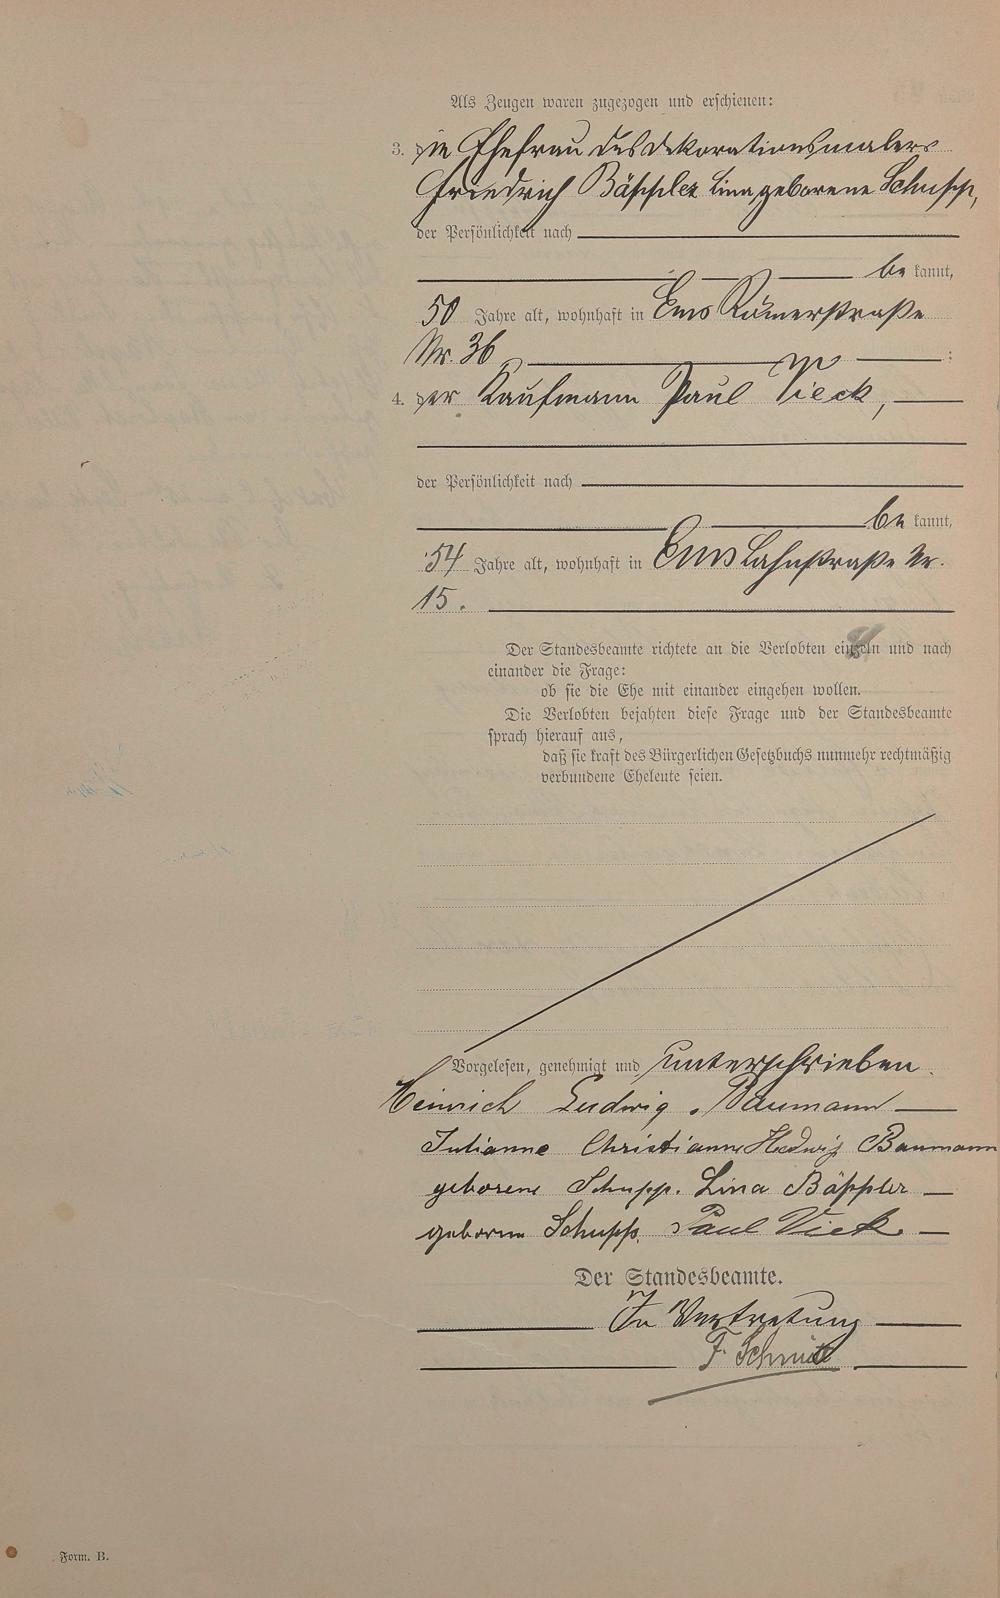 Als Zeugen waren zugezogen und erschienen:
3. die Ehefrau des Dekorationsmalers
Friedrich Bäppler Lina, geborene Schupp,
der Persönlichkeit nach
be kannt,
50 Jahre alt, wohnhaft in Ems Römerstraße
Nr. 36 ;
4. der Kaufmann Paul Vieck,
der Persönlichkeit nach
be kannt,
54 Jahre alt, wohnhaft in Ems Lahnstraße Nr.
15.
Der Standesbeamte richtete an die Verlobten einzeln und nach
einander die Frage:
ob sie die Ehe mit einander eingehen wollen.
Die Verlobten bejahten diese Frage und der Standesbeamte
sprach hierauf aus,
daß sie kraft des Bürgerlichen Gesetzbuchs nunmehr rechtmäßig
verbundene Eheleute seien.
Vorgelesen, genehmigt und unterschrieben.
Heinrich Ludwig Baumann
Julianne Christianne Hedwig Baumann
geborene Schupp. Lina Bäppler
geborene Schupp. Paul Vieck
Der Standesbeamte.
In Vertretung
F. Schmitt
Form. B.